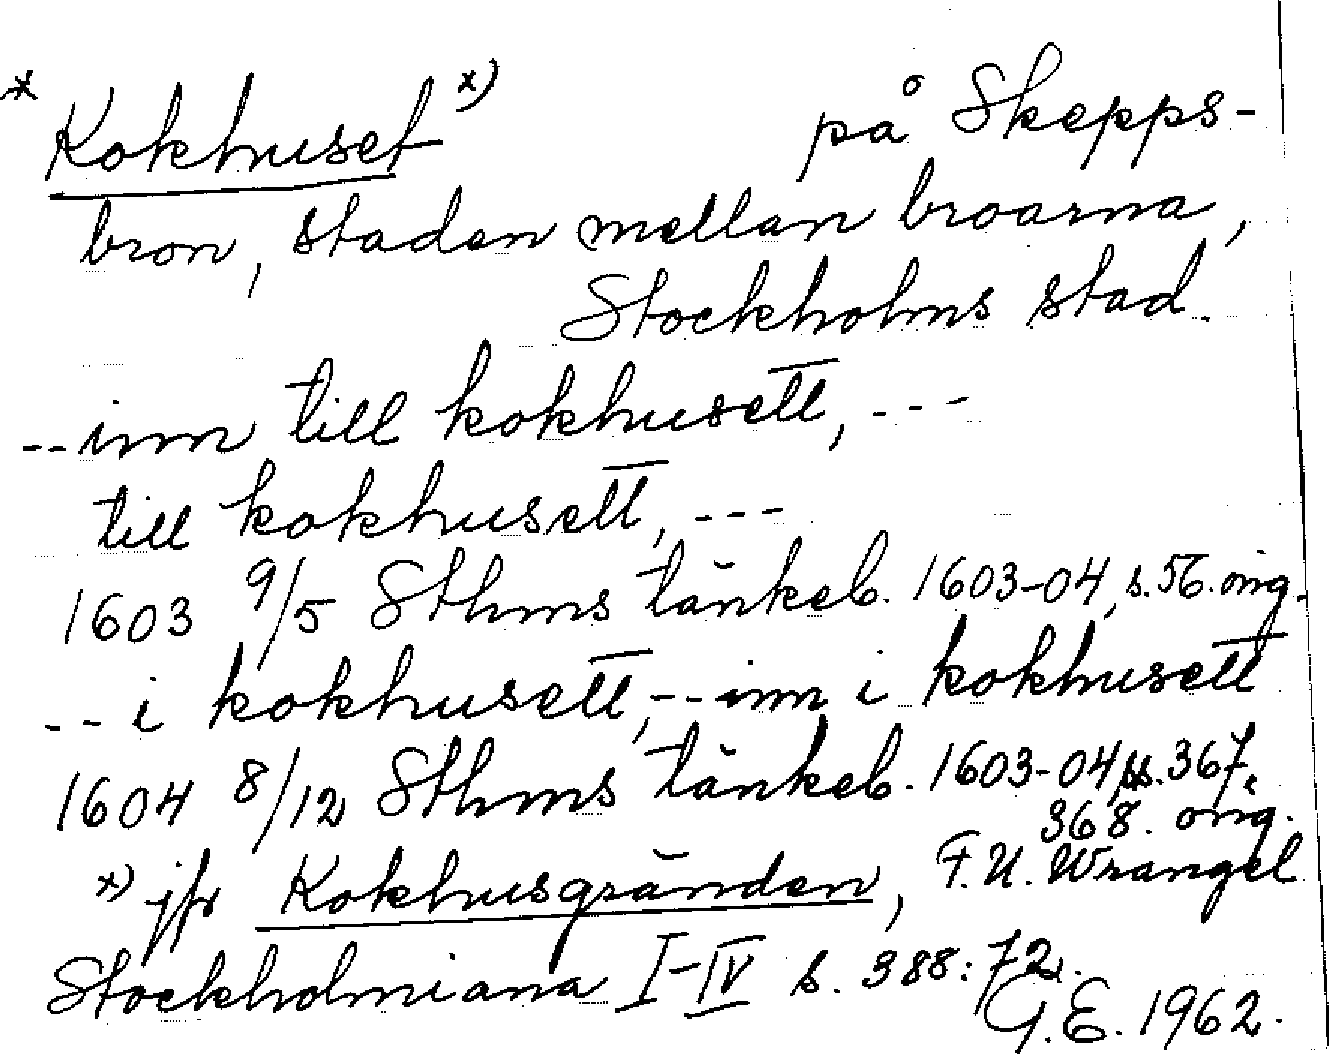 * Kokhuset x) på Skepps-
bron, staden mellan broarna,
Stockholms stad.
-- inn till kokhusett, ---
till kokhusett, ---
1603 9/5 Sthms tänkeb. 1603-04, s. 56. orig.
-- i kokhusett, -- inn i kokhusett
1604 8/12 Sthms tänkeb. 1603-04, ss. 367,
368. orig.
x) jfr Kokhusgränden, F.U. Wrangel
Stockholmiana I-IV s. 388:72.
G.E. 1962.